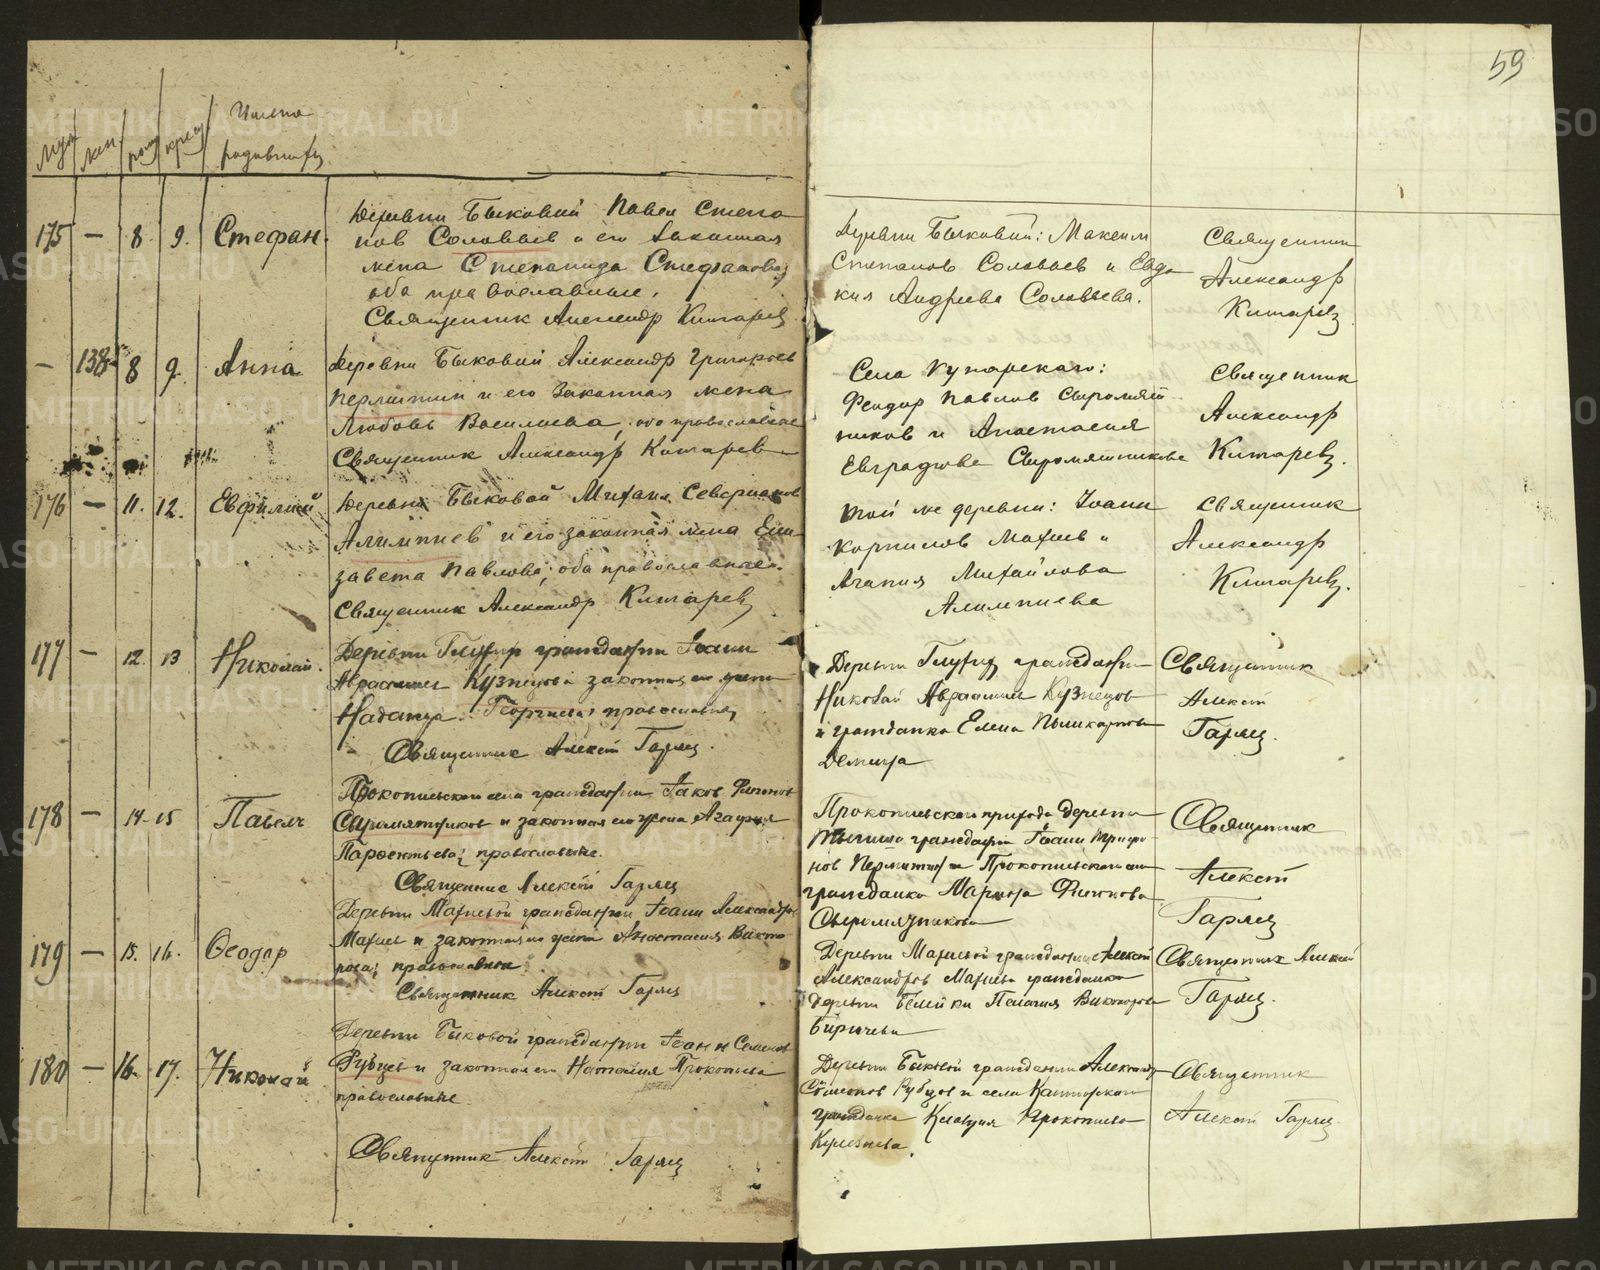 59
муж жен рожд крещ Имена
родившихся
175 — 8 9. Стефан.
Деревни Быковой Павел Степа
нов Соловьев и его законная
жена Степанида Стефанова,
оба православные.
Священник Александр Китарев
Деревни Быковой: Максим
Степанов Соловьев и Евдо
кия Андреева Соловьева.
Священник
Александр
Китарев
— 138 8 9. Анна
Деревни Быковой Александр Григорьев
Пермитин и его законная жена
Любовь Васильева, оба православные
Священник Александр Китарев
Села Кунарского:
Феодор Павлов Сыромят
ников и Анастасия
Евграфова Сыромятникова
Священник
Александр
Китарев.
176 — 11. 12. Евфимий
Деревни Быковой Михаил Северианов
Алимпиев и его законная жена Ели
завета Павлова, оба православные.
Священник Александр Китарев
Той же деревни: Иоанн
Корнилов Махнев и
Агапия Михайлова
Алимпиева
Священник
Александр
Китарев.
177 — 12. 13 Николай.
Деревни Глухих гражданин Иоанн
Авраамиев Кузнецов законная его жена
Надежда Георгиева православные
Священник Алексей Гаряев.
Деревни Глухих гражданин
Николай Авраамиев Кузнецов
и гражданка Елена Поликарпова
Демина
Священник
Алексей
Гаряев.
178 — 14 15 Павел
Прокопьевского села гражданин Иаков Филиппов
Сыромятников и законная его жена Агафия
Парфентьева; православные.
Священник Алексей Гаряев
Прокопьевского прихода деревни
гражданин Иоанн Трифо
нов Пермитин и Прокопьевского села
гражданка Марина Филиппова
Сыромятникова
Священник
Алексей
Гаряев
179 — 15. 16. Феодор
Деревни Махневой гражданин Иоанн Александров
Махнев и законная его жена Анастасия Викто
рова; православные
Священник Алексей Гаряев
Деревни Махневой гражданин Алексей
Александров Махнев гражданка
деревни Белейки Пелагия Викторова
Бирючева
Священник Алексей
Гаряев.
180 — 16. 17. Николай
Деревни Быковой гражданин Иоанн Семенов
Рубцов и законная его Наталия Прокопьева
православные
Священник Алексей Гаряев
Деревни Быковой гражданин Александр
Симеонов Рубцов и села
гражданка Клавдия Прокопьева
Священник
Алексей Гаряев
METRIKI.GASO-URAL.RU